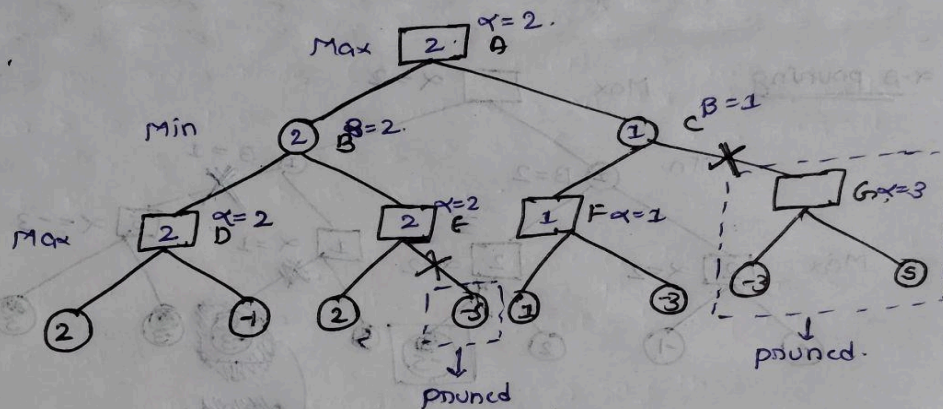 α=2.
Max 2 A
B=1
Min 2 B=2. 1 C
B
Max 2 α=2 D 2 α=2 E 1 F α=1 G α=3
2 -1 2 -3 1 -3 -3 5
pruned pruned.